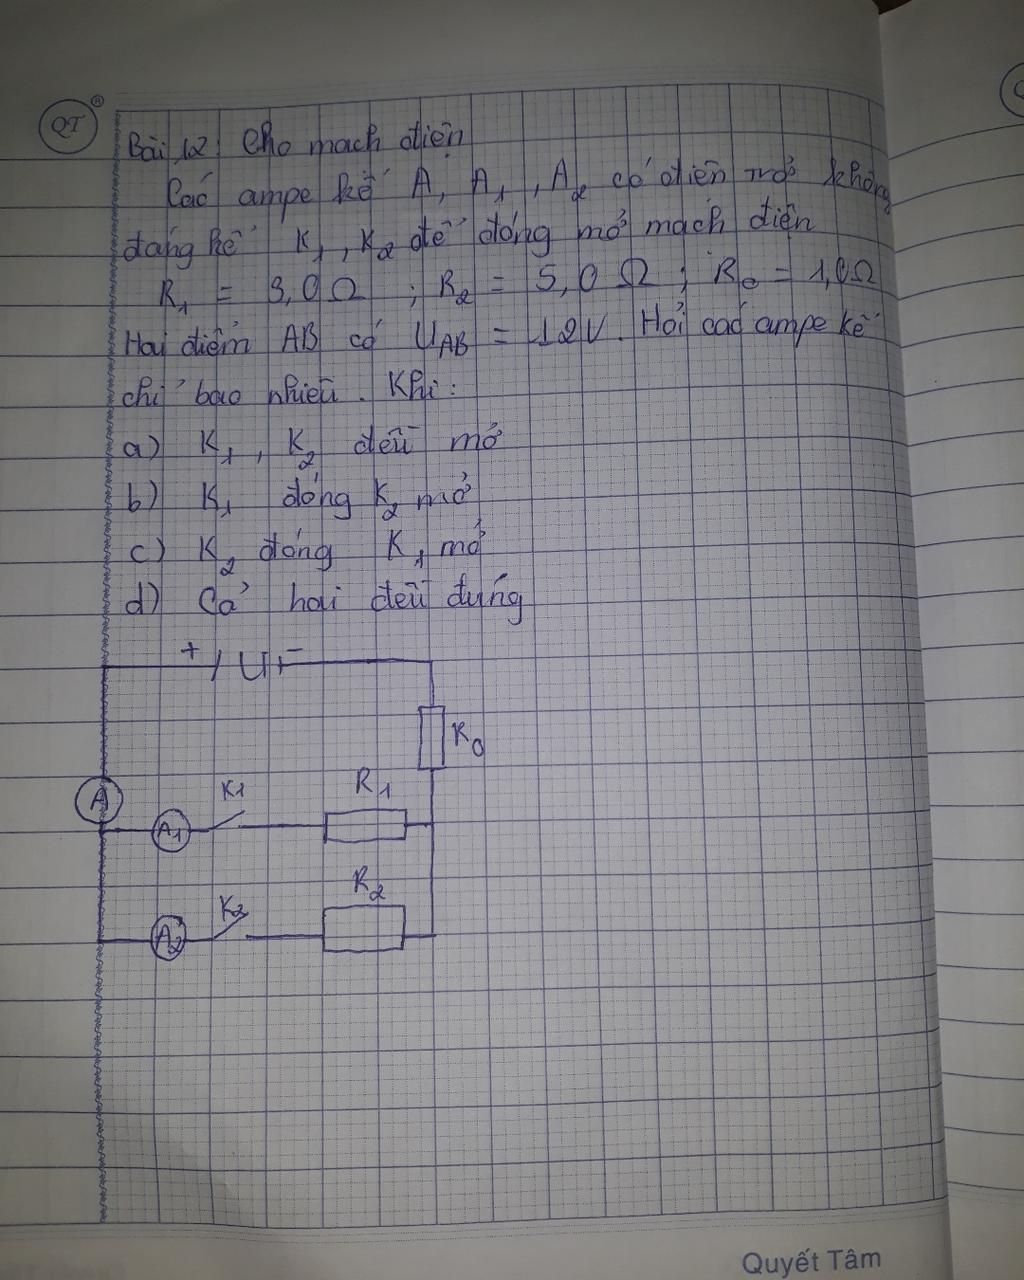 QT ®
Bài 12: Cho mạch điện
Các ampe kế A, A1, A2 có điện trở không
đáng kể K1, K2 để đóng mở mạch điện
R1 = 3,0Ω ; R2 = 5,0Ω ; R0 = 1,0Ω
Hai điểm AB có UAB = 12V. Hỏi các ampe kế
chỉ bao nhiêu. Khi:
a) K1, K2 đều mở
b) K1 đóng K2 mở
c) K2 đóng K1 mở
d) Cả hai đều đứng
+ U -
R0
A
K1
R1
A1
K2
R2
A2
Quyết Tâm